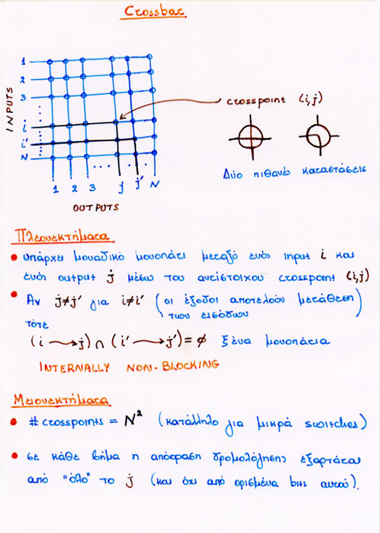 Crossbar
1
2
3
i
i'
N
INPUTS
1 2 3 j j' N
OUTPUTS
crosspoint (i,j)
Δύο πιθανές καταστάσεις
Πλεονεκτήματα
• υπάρχει μοναδικό μονοπάτι μεταξύ ενός input i και
ενός output j μέσω του αντίστοιχου crosspoint (i,j)
• Αν j≠j' για i≠i' (οι έξοδοι αποτελούν μετάθεση
των εισόδων
τότε
(i ⟶ j) ∩ (i' ⟶ j') = ∅ ξένα μονοπάτια
INTERNALLY NON-BLOCKING
Μειονεκτήματα
• # crosspoints = N² (κατάλληλο για μικρά switches)
• σε κάθε βήμα η απόφαση δρομολόγησης εξαρτάται
από "όλο" το j (και όχι από ορισμένα bits αυτού).